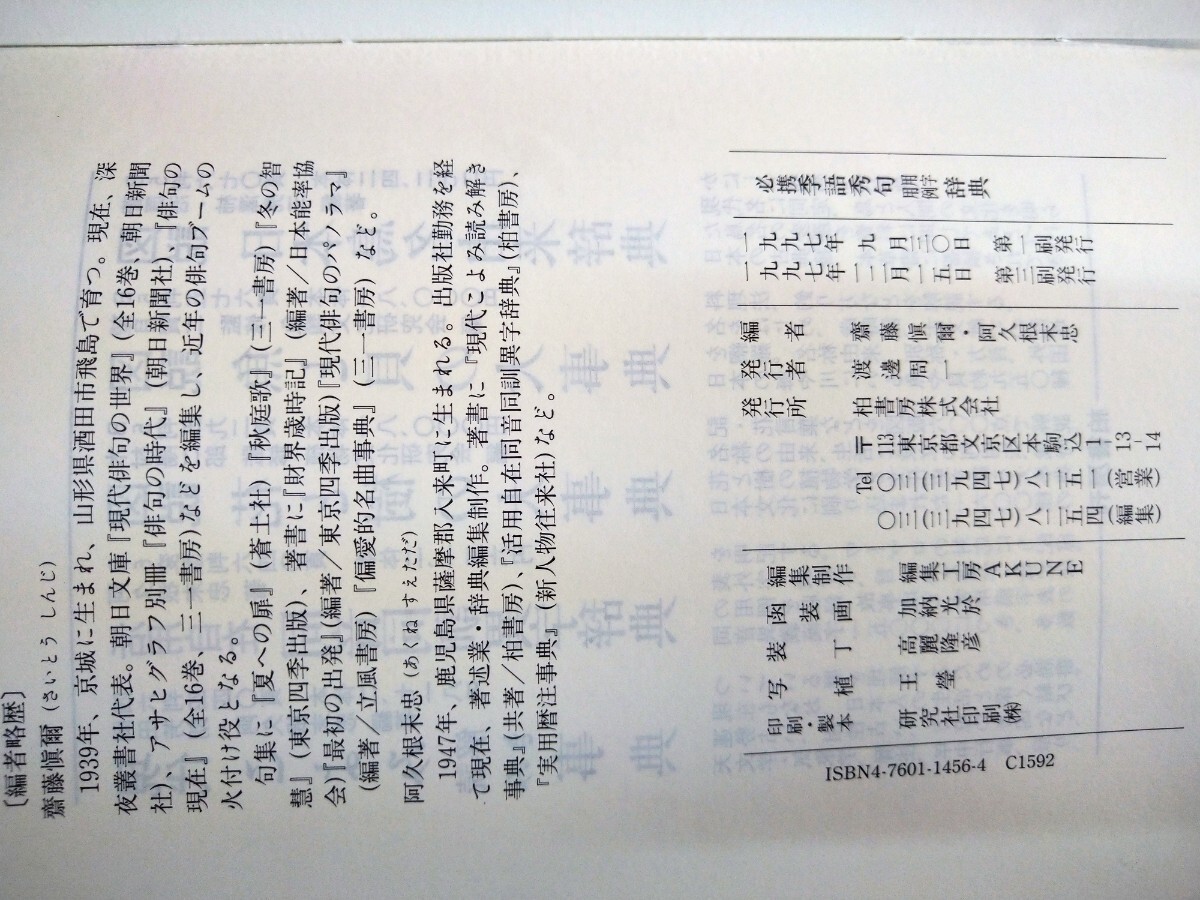 〔編者略歴〕
齋藤愼爾（さいとう しんじ）
1939年、京城に生まれ、山形県酒田市飛島で育つ。現在、深
夜叢書社代表。朝日文庫『現代俳句の世界』（全16巻、朝日新聞
社）、アサヒグラフ別冊『俳句の時代』（朝日新聞社）、『俳句の
現在』（全16巻、三一書房）などを編集し、近年の俳句ブームの
火付け役となる。
句集に『夏への扉』（蒼土社）『秋庭歌』（三一書房）『冬の智
慧』（東京四季出版）、著書に『財界歳時記』（編著／日本能率協
会）『最初の出発』（編著／東京四季出版）『現代俳句のパノラマ』
（編著／立風書房）『偏愛的名曲事典』（三一書房）など。
阿久根末忠（あくね すえただ）
1947年、鹿児島県薩摩郡入来町に生まれる。出版社勤務を経
て現在、著述業・辞典編集制作。著書に『現代こよみ読み解き
事典』（共著／柏書房）、『活用自在同音同訓異字辞典』（柏書房）、
『実用暦注事典』（新人物往来社）など。
必携季語秀句用字用例辞典
一九九七年九月三〇日　第一刷発行
一九九七年一二月一五日　第三刷発行
編者　齋藤愼爾・阿久根末忠
発行者　渡邊周一
発行所　柏書房株式会社
〒113 東京都文京区本駒込1-13-14
Tel 〇三（三九四七）八二五一（営業）
〇三（三九四七）八二五四（編集）
編集制作　編集工房AKUNE
函装画　加納光於
装丁　高麗隆彦
写植　王瑩
印刷・製本　研究社印刷㈱
ISBN4-7601-1456-4 C1592